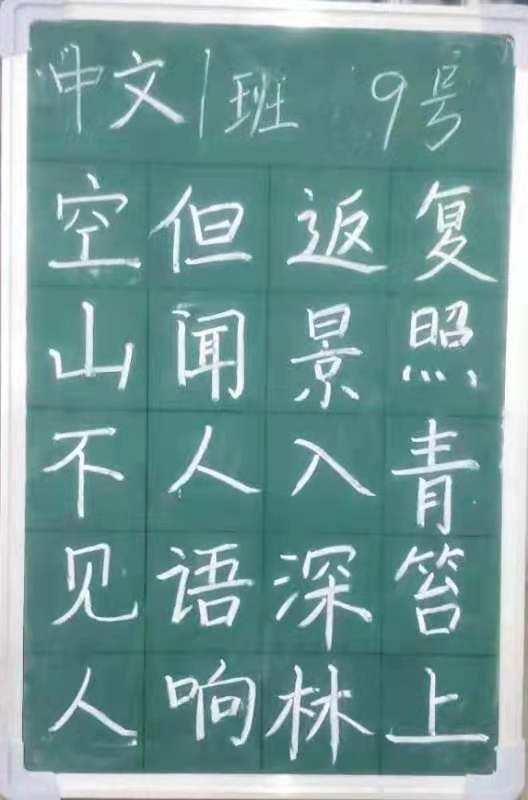 中文1班 9号
空山不见人
但闻人语响
返景入深林
复照青笞上